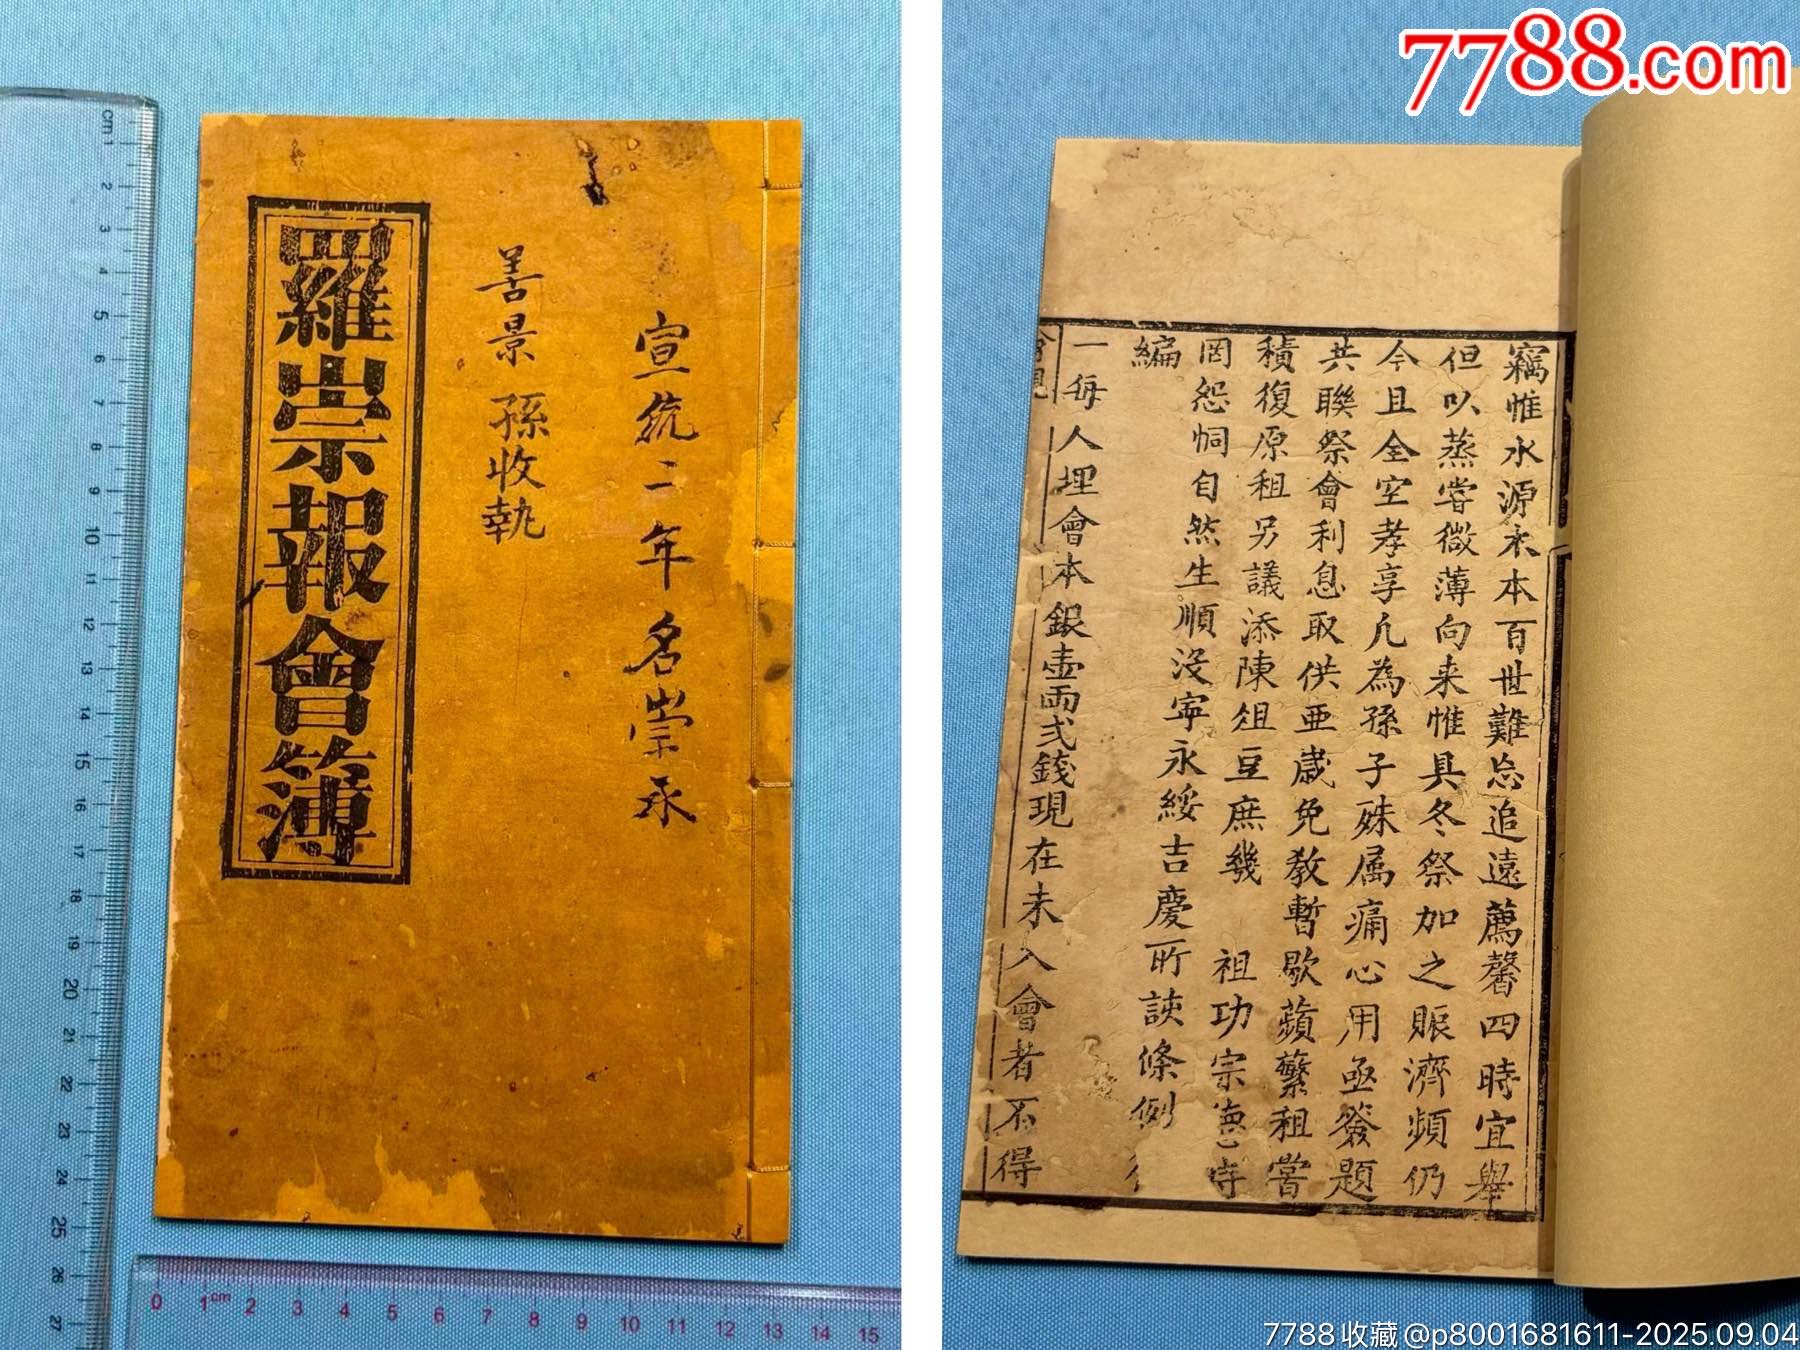 7788.com
羅崇報會簿
宣統二年名崇承
善景 孫收執
竊惟水源木本百世難忘追遠薦馨四時宜舉
但以蒸嘗微薄向来惟具冬祭加之賑濟頻仍
今且全空孝享凡為孫子殊属痛心用亟簽題
共聯祭會利息取供亜歲免教暫歇蘋蘩租嘗
積復原租另議添陳俎豆庶幾 祖功宗德
罔怨恫自然生順没寧永綏吉慶所議條例
編
一每人埋會本銀壹両弍錢現在未入會者不得
7788收藏@p8001681611-2025.09.04